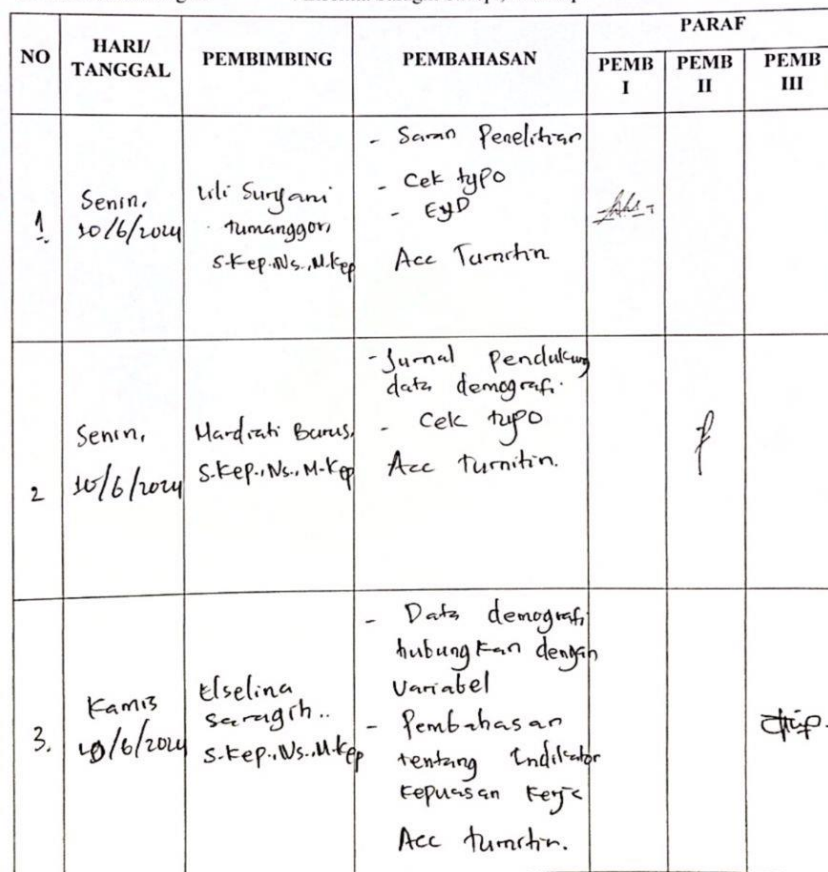 NO
HARI/
TANGGAL
PEMBIMBING
PEMBAHASAN
PARAF
PEMB
I
PEMB
II
PEMB
III
1.
Senin,
10/6/2024
Lili Suryani
Tumanggor,
S.Kep.,Ns.,M.Kep
- Saran Penelitian
- Cek typo
- EyD
Acc Turnitin
2
Senin,
10/6/2024
Mardiati Barus,
S.Kep.,Ns.,M.Kep
- Jurnal Pendukung
data demografi.
- Cek typo
Acc turnitin.
3.
Kamis
/6/2024
Elselina
Saragih..
S.Kep.,Ns.,M.Kep
- Data demografi
hubungkan dengan
Variabel
- Pembahasan
tentang Indikator
Kepuasan Kerja
Acc turnitin.